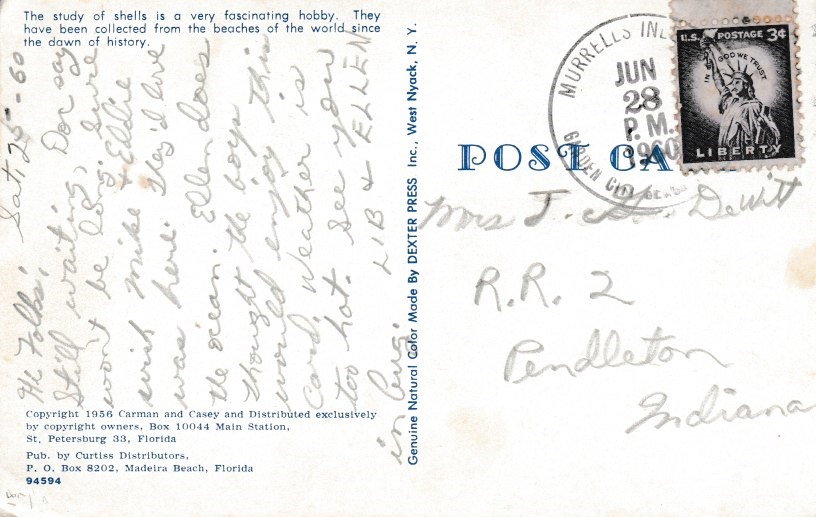 The study of shells is a very fascinating hobby. They
have been collected from the beaches of the world since
the dawn of history.
Hi Folks; Sat. 25-60
Still waiting, Don say
won't be long. Sure
wish Mike & Eddie
was here. They'd love
the ocean. Ellen does
Thought the boys
would enjoy this
card. Weather is
too hot. See you
in Aug. LIB & ELLEN
Copyright 1956 Carman and Casey and Distributed exclusively
by copyright owners, Box 10044 Main Station,
St. Petersburg 33, Florida
Pub. by Curtiss Distributors,
P. O. Box 8202, Madeira Beach, Florida
94594
Genuine Natural Color Made By DEXTER PRESS Inc., West Nyack, N. Y.
POST CA
MURRELLS INL
JUN
28
P. M.
1960
GARDEN CITY BEACH
U.S. POSTAGE 3¢
IN GOD WE TRUST
LIBERTY
Mrs J. DeWitt
R.R. 2
Pendleton
Indiana